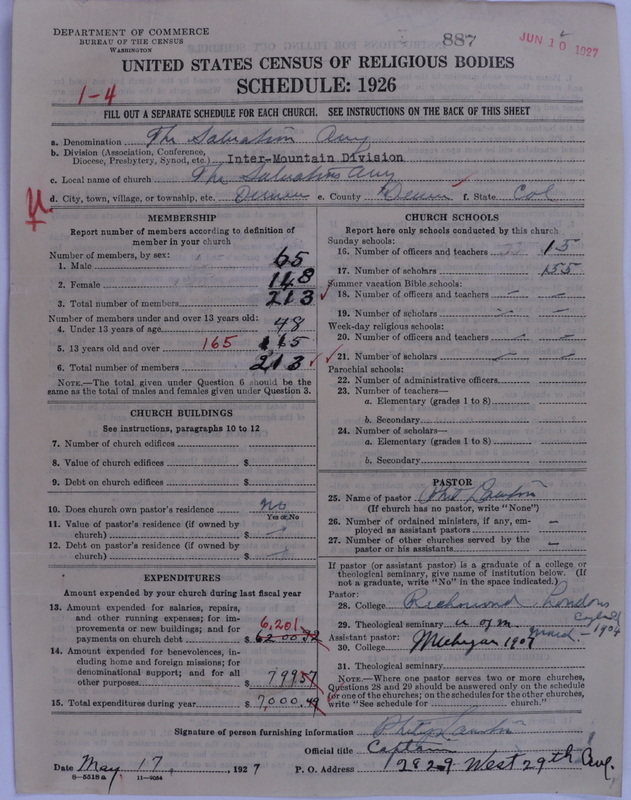 DEPARTMENT OF COMMERCE
BUREAU OF THE CENSUS
WASHINGTON
887
JUN 10 1927
UNITED STATES CENSUS OF RELIGIOUS BODIES
SCHEDULE: 1926
1-4
FILL OUT A SEPARATE SCHEDULE FOR EACH CHURCH. SEE INSTRUCTIONS ON THE BACK OF THIS SHEET
a. Denomination The Salvation Army
b. Division (Association, Conference, Diocese, Presbytery, Synod, etc.) Inter-Mountain Division
c. Local name of church The Salvation Army
d. City, town, village, or township, etc. Denver e. County Denver f. State Col
MEMBERSHIP
Report number of members according to definition of member in your church
Number of members, by sex:
1. Male 65
2. Female 148
3. Total number of members 213
Number of members under and over 13 years old:
4. Under 13 years of age 48
5. 13 years old and over 165
6. Total number of members 213
NOTE.—The total given under Question 6 should be the same as the total of males and females given under Question 3.
CHURCH BUILDINGS
See instructions, paragraphs 10 to 12
7. Number of church edifices
8. Value of church edifices $
9. Debt on church edifices $
10. Does church own pastor's residence no
Yes or No
11. Value of pastor's residence (if owned by church) $
12. Debt on pastor's residence (if owned by church) $
EXPENDITURES
Amount expended by your church during last fiscal year
13. Amount expended for salaries, repairs, and other running expenses; for improvements or new buildings; and for payments on church debt $ 6,201
14. Amount expended for benevolences, including home and foreign missions; for denominational support; and for all other purposes $ 799 57
15. Total expenditures during year $ 7,000.49
CHURCH SCHOOLS
Report here only schools conducted by this church
Sunday schools:
16. Number of officers and teachers 15
17. Number of scholars 155
Summer vacation Bible schools:
18. Number of officers and teachers
19. Number of scholars
Week-day religious schools:
20. Number of officers and teachers
21. Number of scholars
Parochial schools:
22. Number of administrative officers
23. Number of teachers—
a. Elementary (grades 1 to 8)
b. Secondary
24. Number of scholars—
a. Elementary (grades 1 to 8)
b. Secondary
PASTOR
25. Name of pastor
(If church has no pastor, write "None")
26. Number of ordained ministers, if any, employed as assistant pastors –
27. Number of other churches served by the pastor or his assistants –
If pastor (or assistant pastor) is a graduate of a college or theological seminary, give name of institution below. (If not a graduate, write "No" in the space indicated.)
Pastor:
28. College Richmond London England
29. Theological seminary u. of m. 1904
Assistant pastor:
30. College Michigan 1907
31. Theological seminary
NOTE.—Where one pastor serves two or more churches, Questions 28 and 29 should be answered only on the schedule for one of the churches; on the schedules for the other churches, write "See schedule for church."
Signature of person furnishing information
Official title Captain
Date May 17, 1927 P. O. Address 2829 West 29th Ave.
8-5518a 11-9054